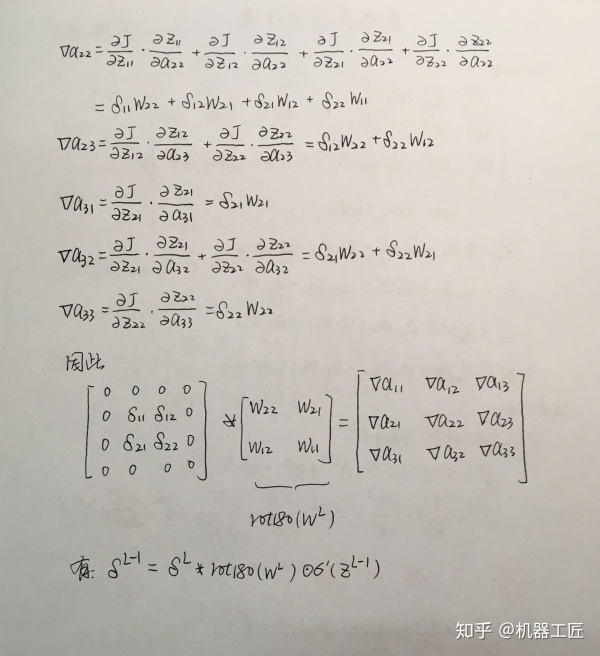 ∇a₂₂ = ∂J/∂z₁₁ · ∂z₁₁/∂a₂₂ + ∂J/∂z₁₂ · ∂z₁₂/∂a₂₂ + ∂J/∂z₂₁ · ∂z₂₁/∂a₂₂ + ∂J/∂z₂₂ · ∂z₂₂/∂a₂₂
= δ₁₁W₂₂ + δ₁₂W₂₁ + δ₂₁W₁₂ + δ₂₂W₁₁
∇a₂₃ = ∂J/∂z₁₂ · ∂z₁₂/∂a₂₃ + ∂J/∂z₂₂ · ∂z₂₂/∂a₂₃ = δ₁₂W₂₂ + δ₂₂W₁₂
∇a₃₁ = ∂J/∂z₂₁ · ∂z₂₁/∂a₃₁ = δ₂₁W₂₁
∇a₃₂ = ∂J/∂z₂₁ · ∂z₂₁/∂a₃₂ + ∂J/∂z₂₂ · ∂z₂₂/∂a₃₂ = δ₂₁W₂₂ + δ₂₂W₂₁
∇a₃₃ = ∂J/∂z₂₂ · ∂z₂₂/∂a₃₃ = δ₂₂W₂₂
因此
[0 0 0 0; 0 δ₁₁ δ₁₂ 0; 0 δ₂₁ δ₂₂ 0; 0 0 0 0] * [W₂₂ W₂₁; W₁₂ W₁₁] = [∇a₁₁ ∇a₁₂ ∇a₁₃; ∇a₂₁ ∇a₂₂ ∇a₂₃; ∇a₃₁ ∇a₃₂ ∇a₃₃]
rot180(Wᴸ)
δᴸ⁻¹ = δᴸ * rot180(Wᴸ) ⊙ σ'(zᴸ⁻¹)
知乎 @机器工匠